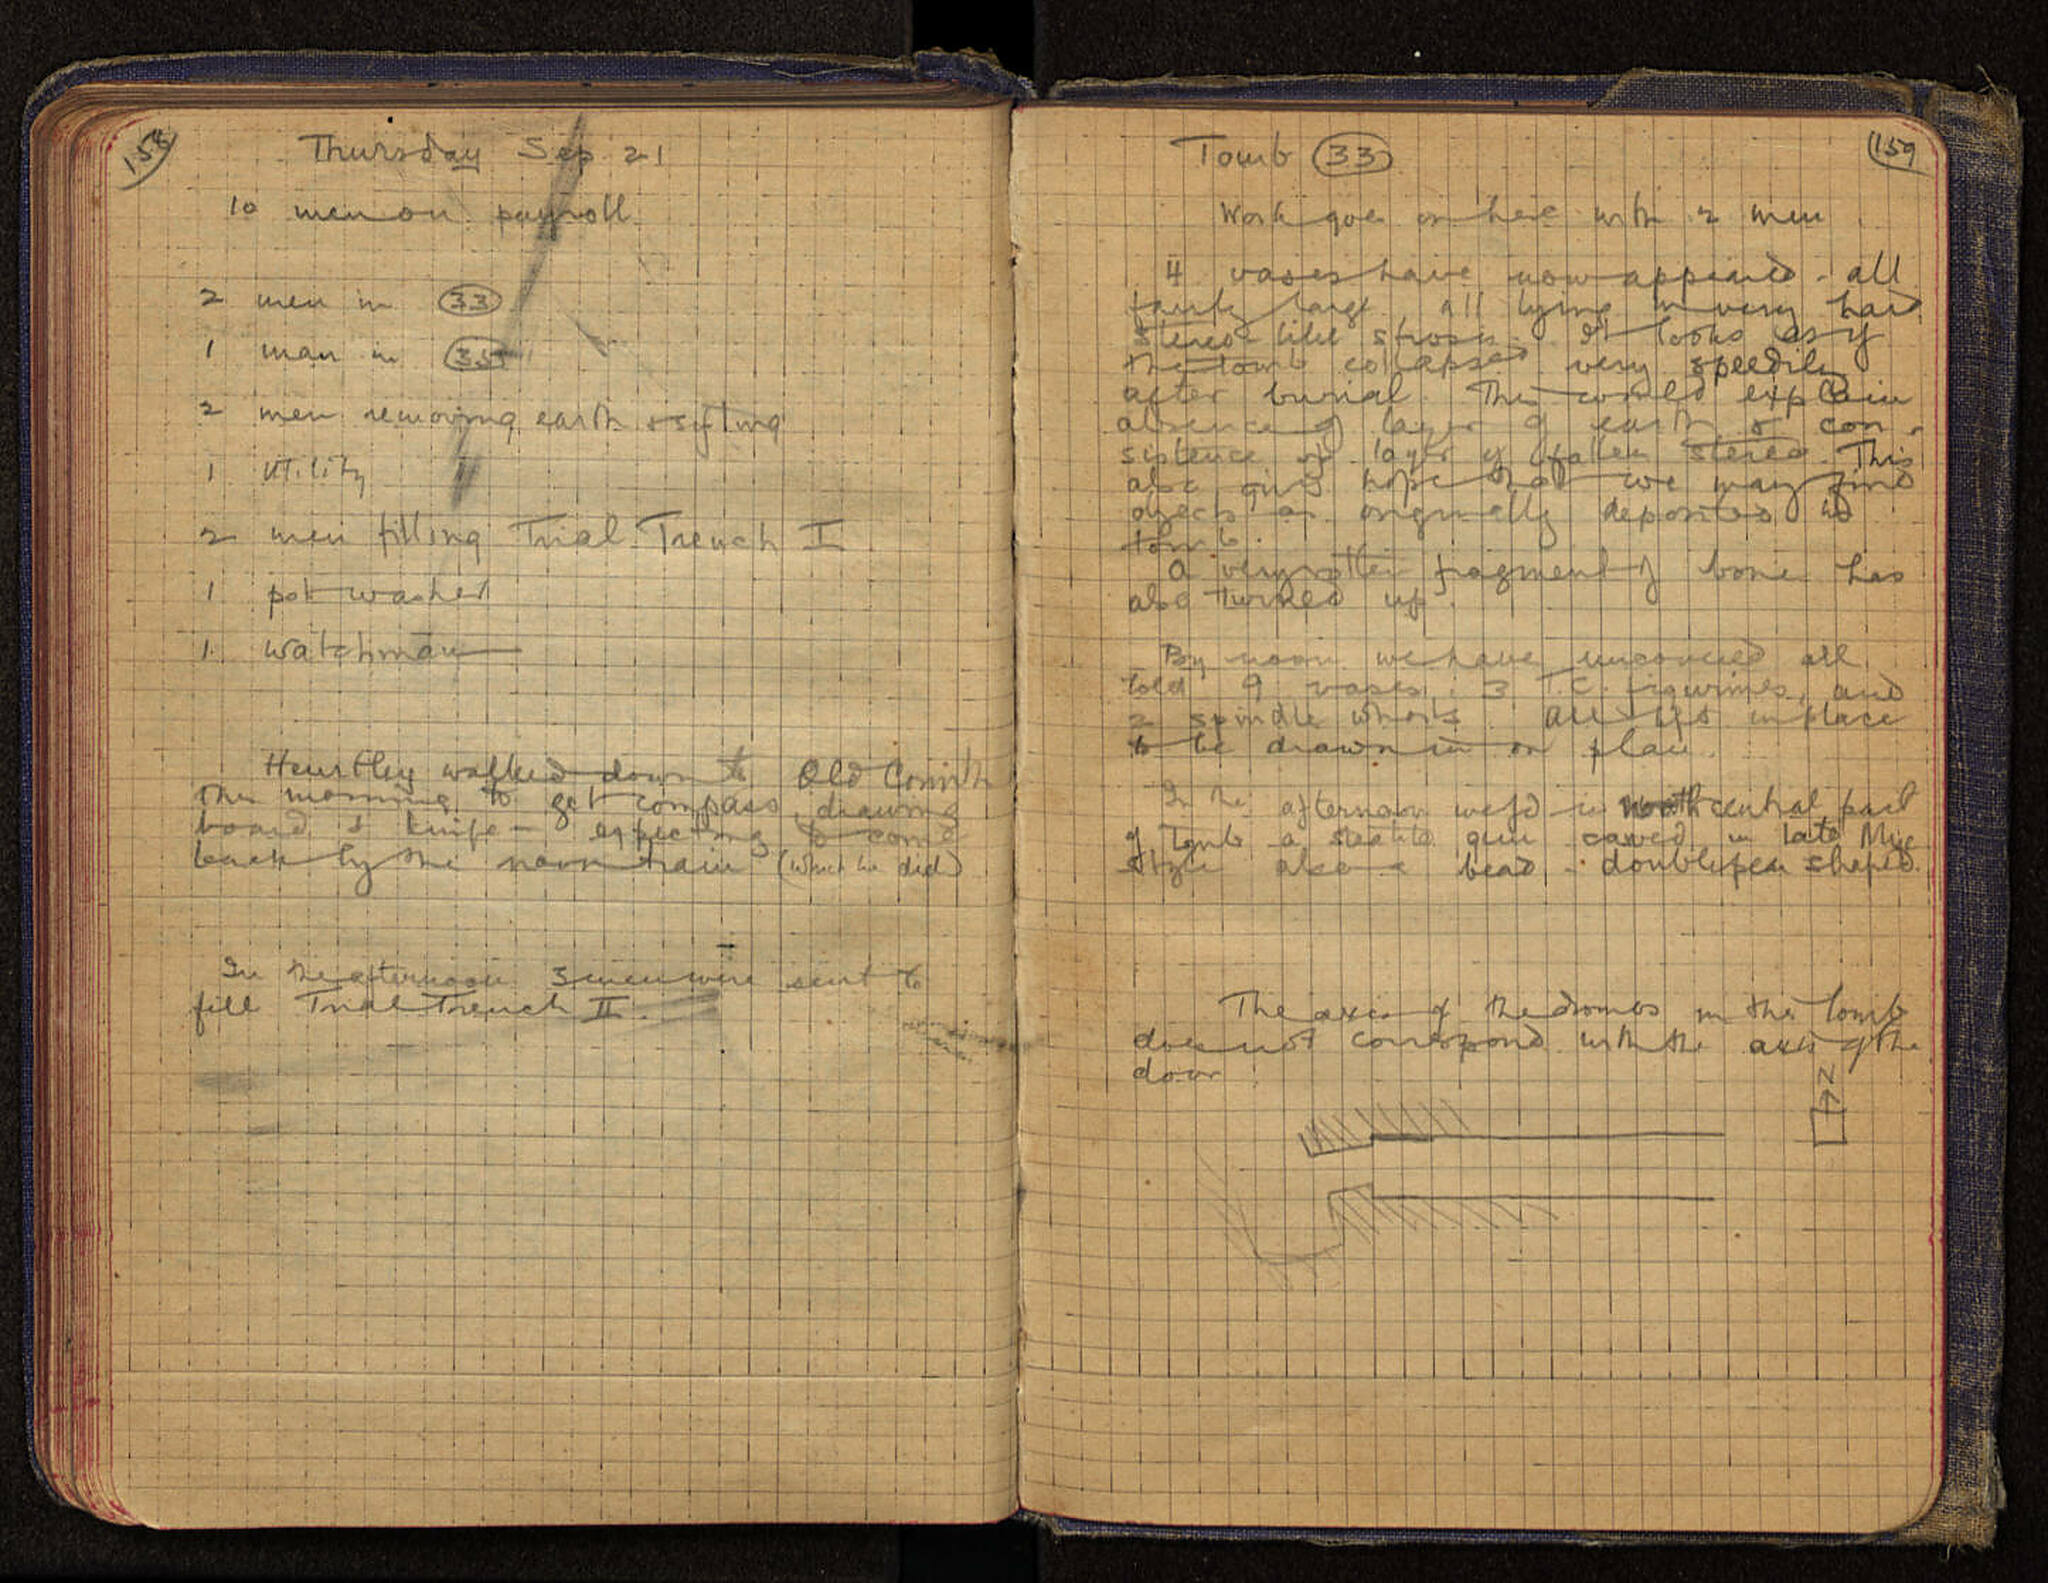 158
Thursday Sep. 21
10 men on payroll
2 men in 33
1 man in 35
2 men removing earth & sifting
1 utility
2 men filling Trial Trench I
1 pot washer
1 watchman
Heurtley walked down to Old Corinth
this morning to get compass, drawing
board & knife – expecting to come
back by the noon train (which he did)
In the afternoon 3 men were sent to
fill Trial Trench II.
159
Tomb 33
Work goes on here with 2 men
4 vases have now appeared – all
fairly large all lying in very hard
stereo-like It looks as if
the tomb collapsed very speedily
after burial. This would explain
absence of layer of earth & con-
sistence of layer of fallen stereo. This
also gives hope that we may find
objects as originally deposited in
tomb.
A very rotten fragment of bone has
also turned up.
By noon we have uncovered all
told 9 vases, 3 T.C. figurines, and
2 spindle whorls. All left in place
to be drawn in on plan.
In the afternoon we f'd in central part
of Tomb a steatite gem carved in late Myc
style also a bead – double pear shaped.
The axis of the dromos in this tomb
does not correspond with the axis of the
door.
N